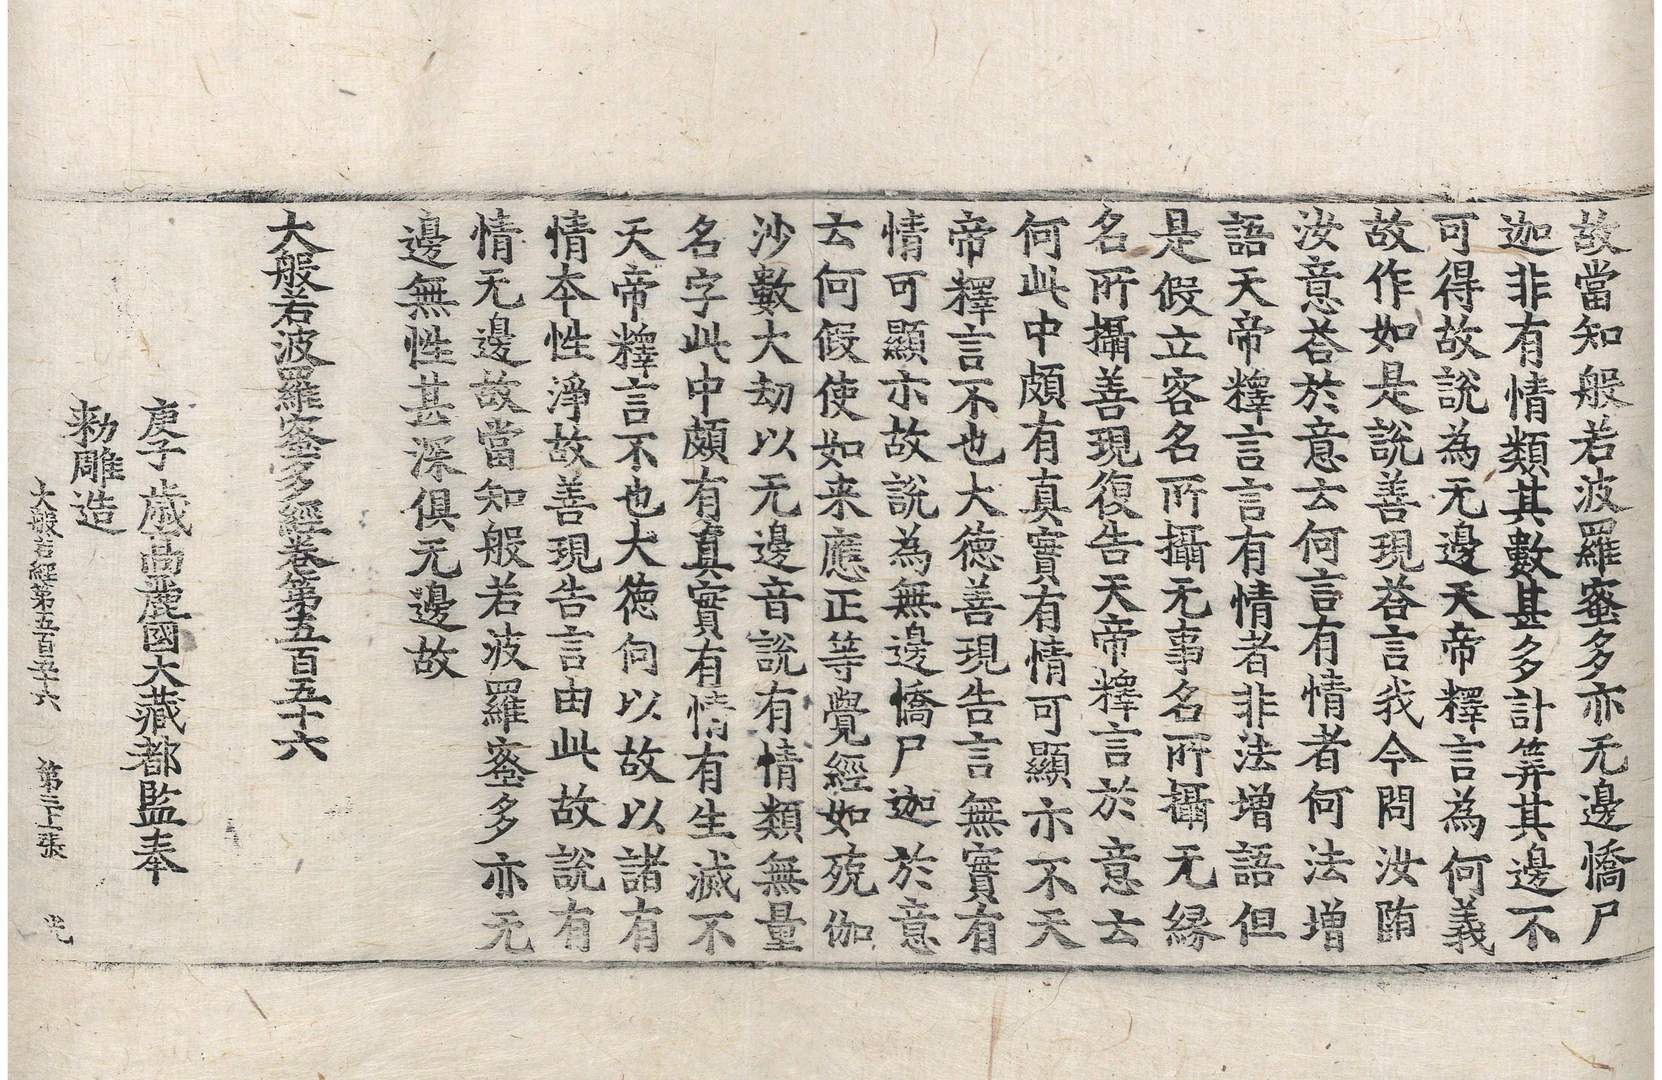 故當知般若波羅蜜多亦无邊憍尸
迦非有情類其數甚多計筭其邊不
可得故說為无邊天帝釋言為何義
故作如是說善現荅言我今問汝隨
汝意荅於意云何言有情者何法增
語天帝釋言言有情者非法增語但
是假立客名所攝无事名所攝无緣
名所攝善現復告天帝釋言於意云
何此中頗有真實有情可顯示不天
帝釋言不也大德善現告言無實有
情可顯示故說為無邊憍尸迦於意
云何假使如来應正等覺經如殑伽
沙數大劫以无邊音說有情類無量
名字此中頗有真實有情有生滅不
天帝釋言不也大德何以故以諸有
情本性淨故善現告言由此故說有
情无邊故當知般若波羅蜜多亦无
邊無性甚深俱无邊故
大般若波羅蜜多經卷第五百五十六
庚子歲高麗國大藏都監奉
勑雕造
大般若經第五百五十六 第二十張 光